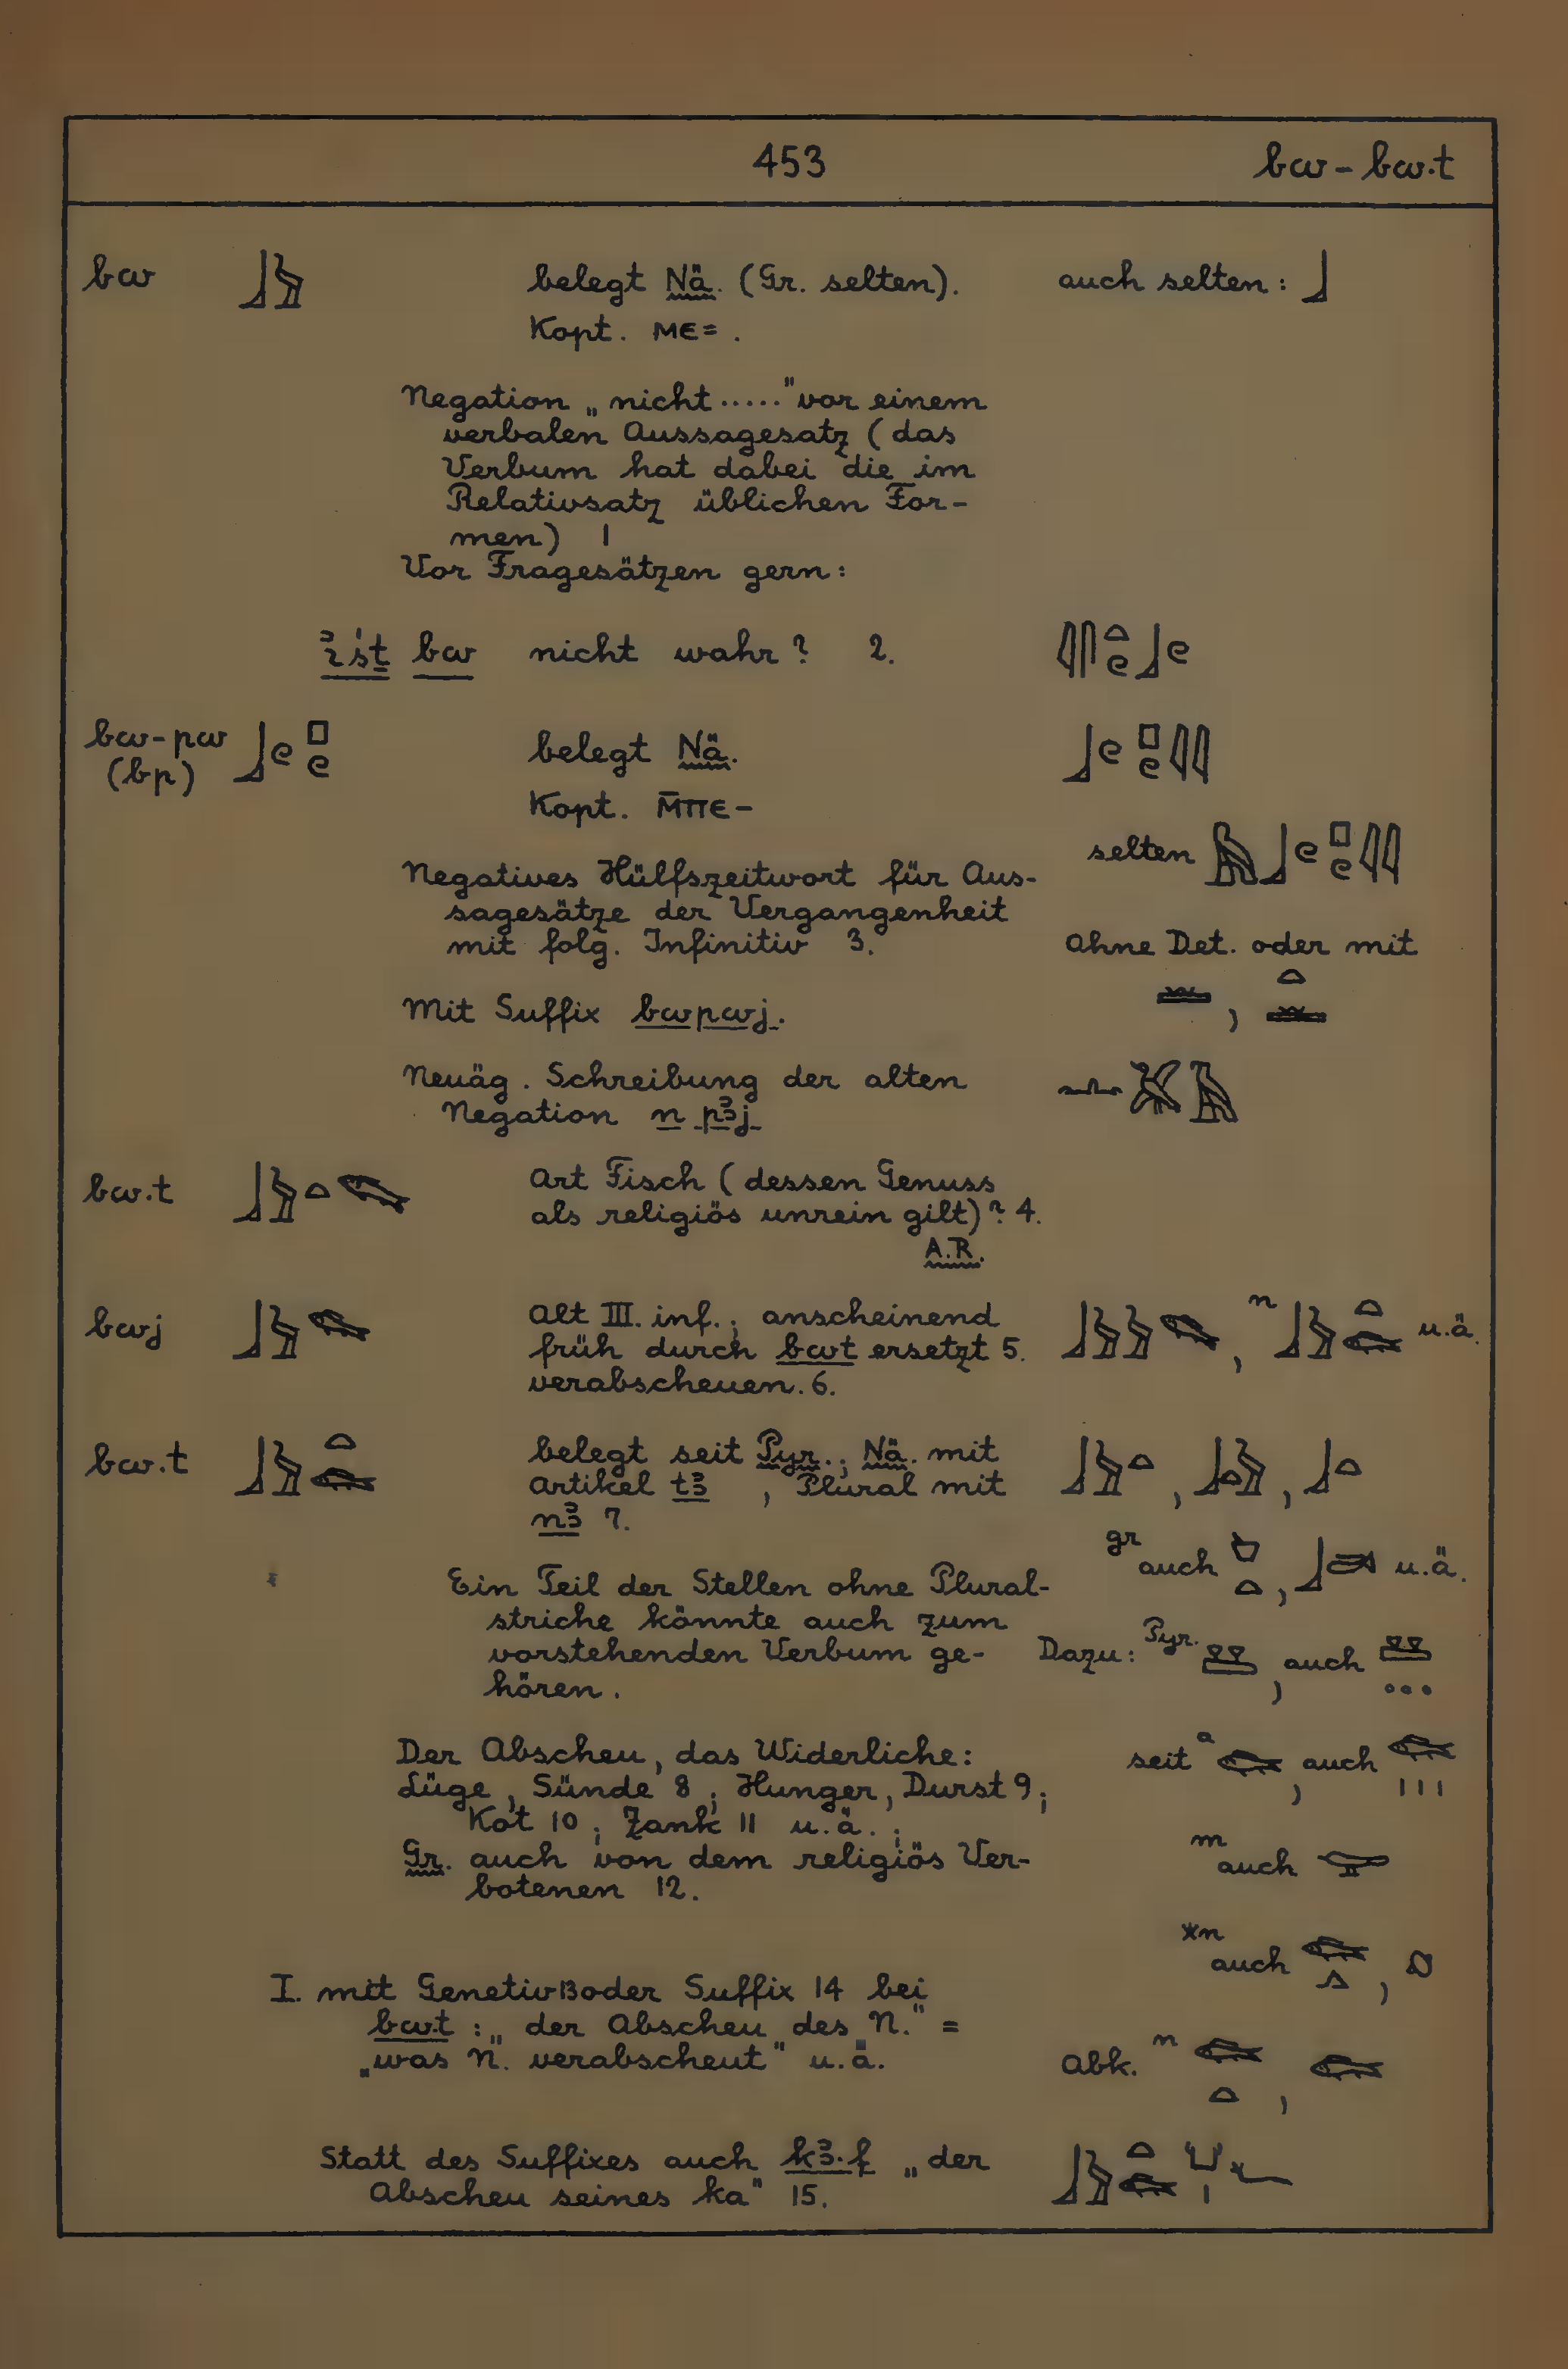 453 bw - bw.t
bw 𓃀𓅱 belegt Nä. (Gr. selten). auch selten: 𓃀
Kopt. ⲙⲉ= .
Negation „nicht ....." vor einem
verbalen Aussagesatz (das
Verbum hat dabei die im
Relativsatz üblichen For-
men) 1
Vor Fragesätzen gern:
bw nicht wahr? 2.
bw-pw 𓃀𓏲𓊪𓏲 belegt Nä. 𓃀𓏲𓊪𓏲𓇋𓇋
(bp)
Kopt. ⲙ̄ⲡⲉ-
selten 𓅓𓃀𓏲𓊪𓏲𓇋𓇋
Negatives Hülfszeitwort für Aus-
sagesätze der Vergangenheit
mit folg. Infinitiv 3. Ohne Det. oder mit
Mit Suffix bwpwj.
Neuäg. Schreibung der alten 𓂜𓅮𓄿
Negation n pꜣj
bw.t 𓃀𓅱𓏏𓆟 Art Fisch (dessen Genuss
als religiös unrein gilt)? 4.
A.R.
bwj 𓃀𓅱𓆟 Alt III. inf.; anscheinend 𓃀𓅱𓅱𓆟, n 𓃀𓅱𓏏𓆟 u.ä.
früh durch bwt ersetzt 5.
verabscheuen. 6.
bw.t 𓃀𓅱𓏏𓆟 belegt seit Pyr.; Nä. mit 𓃀𓅱𓏏, 𓃀𓏏𓅱, 𓃀𓏏
Artikel tꜣ , Plural mit
nꜣ 7.
gr auch u.ä.
Ein Teil der Stellen ohne Plural-
striche könnte auch zum
vorstehenden Verbum ge- Dazu: Pyr. , auch
hören.
Der Abscheu, das Widerliche: seit a 𓆟, auch 𓆟𓏥
Lüge, Sünde 8; Hunger, Durst 9;
Kot 10; Zank 11 u.ä.;
Gr. auch von dem religiös Ver- m auch
botenen 12.
*n auch 𓆟
I. mit Genetiv 13 oder Suffix 14 bei
bw.t: „der Abscheu des N." =
„was N. verabscheut" u.ä. Abk. n 𓆟𓏏, 𓆟
Statt des Suffixes auch kꜣ.f „der 𓃀𓅱𓏏𓆟𓂓𓏤𓆑
Abscheu seines ka" 15.